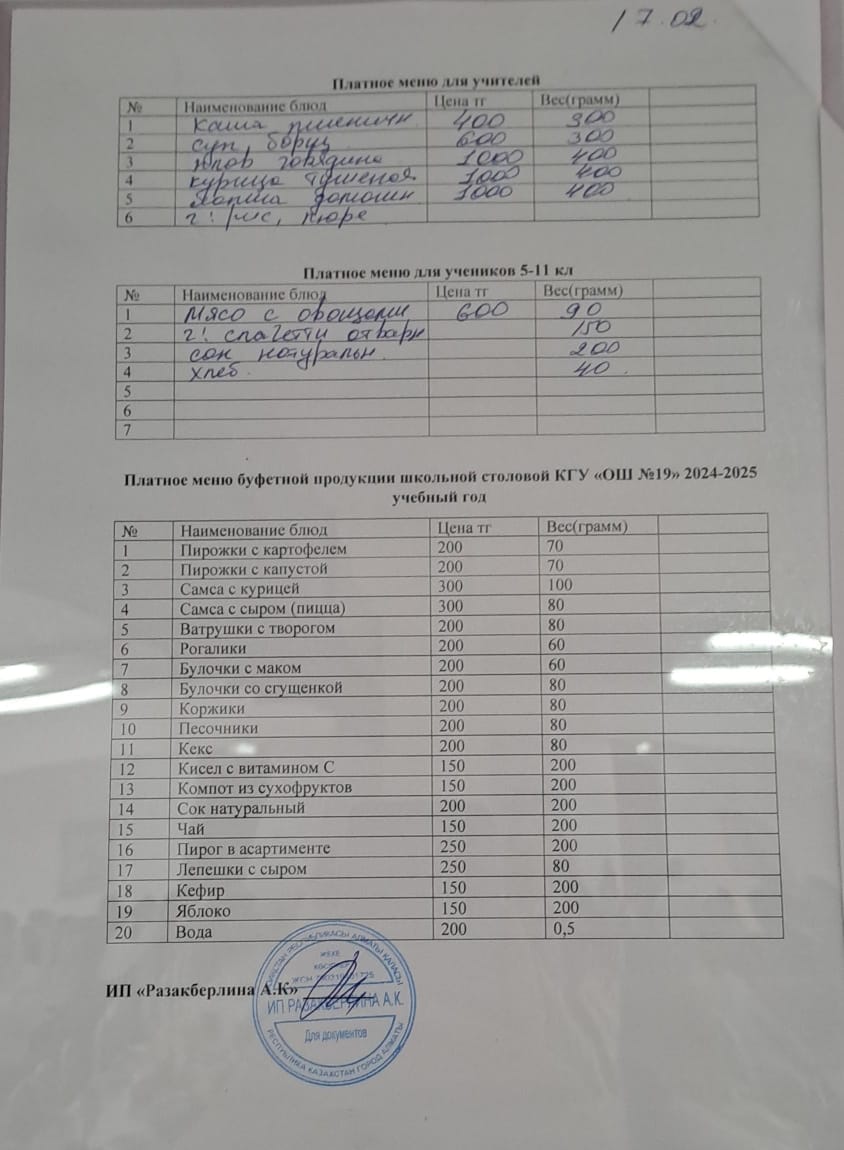 17.02.
Платное меню для учителей
№ Наименование блюд Цена тг Вес(грамм)
1 каша пшеничн 400 300
2 суп, борщ 600 300
3 плов говядина 1000 400
4 курица тушеная 1000 400
5 лапша домашн 1000 400
6 г! рис, пюре
Платное меню для учеников 5-11 кл
№ Наименование блюд Цена тг Вес(грамм)
1 мясо с овощами 600 90
2 г! спагетти отварн 150
3 сок натуральн. 200
4 хлеб. 40.
5
6
7
Платное меню буфетной продукции школьной столовой КГУ «ОШ №19» 2024-2025
учебный год
№ Наименование блюд Цена тг Вес(грамм)
1 Пирожки с картофелем 200 70
2 Пирожки с капустой 200 70
3 Самса с курицей 300 100
4 Самса с сыром (пицца) 300 80
5 Ватрушки с творогом 200 80
6 Рогалики 200 60
7 Булочки с маком 200 60
8 Булочки со сгущенкой 200 80
9 Коржики 200 80
10 Песочники 200 80
11 Кекс 200 80
12 Кисел с витамином С 150 200
13 Компот из сухофруктов 150 200
14 Сок натуральный 200 200
15 Чай 150 200
16 Пирог в асартименте 250 200
17 Лепешки с сыром 250 80
18 Кефир 150 200
19 Яблоко 150 200
20 Вода 200 0,5
ИП «Разакберлина А.К»
РЕСПУБЛИКАСЫ АЛМАТЫ ҚАЛАСЫ
ЖЕКЕ
ИП РАЗАКБЕРЛИНА А.К.
Для документов
РЕСПУБЛИКА КАЗАХСТАН ГОРОД АЛМАТЫ